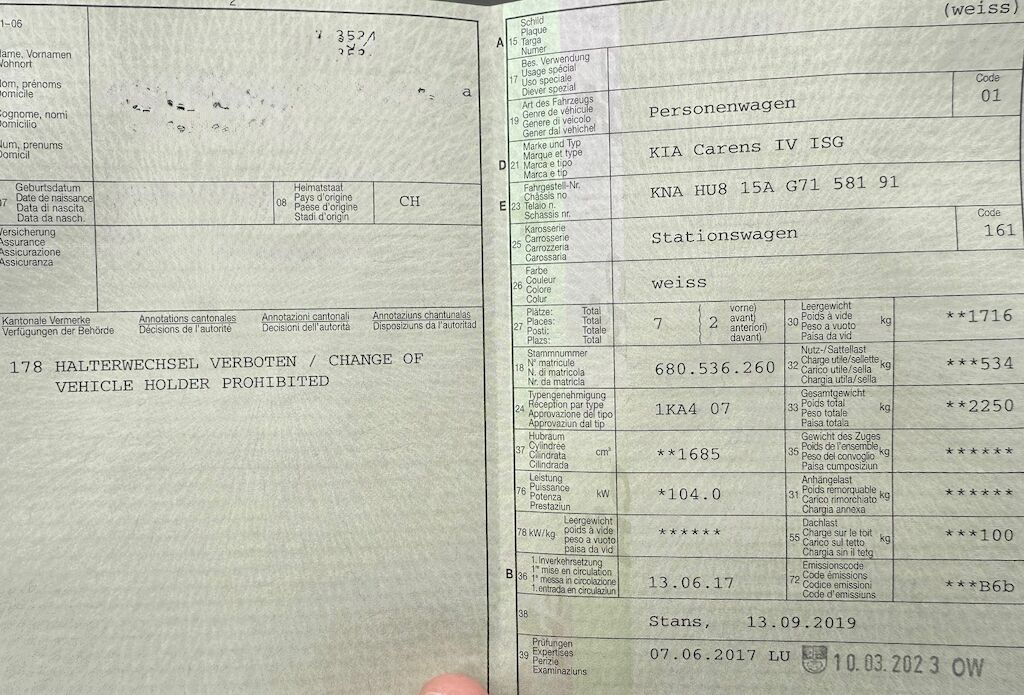 2
1-05
ame, Vornamen
Wohnort
om, prénoms
Domicile
ognome, nomi
Domicilio
um, prenums
omicil
a
07
Geburtsdatum
Date de naissance
Data di nascita
Data da nasch.
08
Heimatstaat
Pays d'origine
Paese d'origine
Stadi d'origin
CH
Versicherung
Assurance
Assicurazione
Assicuranza
Kantonale Vermerke
Verfügungen der Behörde
Annotations cantonales
Décisions de l'autorité
Annotazioni cantonali
Decisioni dell'autorità
Annotaziuns chantunalas
Disposiziuns da l'autoritad
178 HALTERWECHSEL VERBOTEN / CHANGE OF
VEHICLE HOLDER PROHIBITED
(weiss)
A 15
Schild
Plaque
Targa
Numer
17
Bes. Verwendung
Usage spécial
Uso speciale
Diever spezial
19
Art des Fahrzeugs
Genre de véhicule
Genere di veicolo
Gener dal vehichel
Personenwagen
Code
01
D 21
Marke und Typ
Marque et type
Marca e tipo
Marca e tip
KIA Carens IV ISG
E 23
Fahrgestell-Nr.
Châssis no
Telaio n.
Schassis nr.
KNA HU8 15A G71 581 91
25
Karosserie
Carrosserie
Carrozzeria
Carossaria
Stationswagen
Code
161
26
Farbe
Couleur
Colore
Colur
weiss
27
Plätze: Total
Places: Total
Posti: Totale
Plazs: Total
7 { 2
vorne)
avant)
anteriori)
davant)
30
Leergewicht
Poids à vide
Peso a vuoto
Paisa da vid
kg
**1716
18
Stammnummer
N° matricule
N. di matricola
Nr. da matricla
680.536.260
32
Nutz-/Sattellast
Charge utile/sellette
Carico utile/sella
Chargia utila/sella
kg
***534
24
Typengenehmigung
Réception par type
Approvazione del tipo
Approvaziun dal tip
1KA4 07
33
Gesamtgewicht
Poids total
Peso totale
Paisa totala
kg
**2250
37
Hubraum
Cylindrée
Cilindrata
Cilindrada
cm³
**1685
35
Gewicht des Zuges
Poids de l'ensemble
Peso del convoglio
Paisa cumposiziun
kg
******
76
Leistung
Puissance
Potenza
Prestaziun
kW
*104.0
31
Anhängelast
Poids remorquable
Carico rimorchiato
Chargia annexa
kg
******
78 kW/kg
Leergewicht
poids à vide
peso a vuoto
paisa da vid
******
55
Dachlast
Charge sur le toit
Carico sul tetto
Chargia sin il tetg
kg
***100
B 36
1. Inverkehrsetzung
1re mise en circulation
1a messa in circolazione
1. entrada en circulaziun
13.06.17
72
Emissionscode
Code émissions
Codice emissioni
Code d'emissiuns
***B6b
38
Stans, 13.09.2019
39
Prüfungen
Expertises
Perizie
Examinaziuns
07.06.2017 LU
10.03.2023 OW